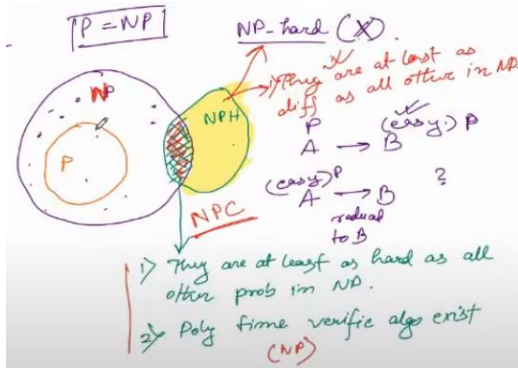 P = NP
NP-hard (X).
1) They are at least as
diff as all other in NP
NP
NPH
P
P
A → B (easy) P
(easy) P
A → B ?
reduced
to B
NPC
1) They are at least as hard as all
other prob in NP.
2) Poly time verific algo exist
(NP)